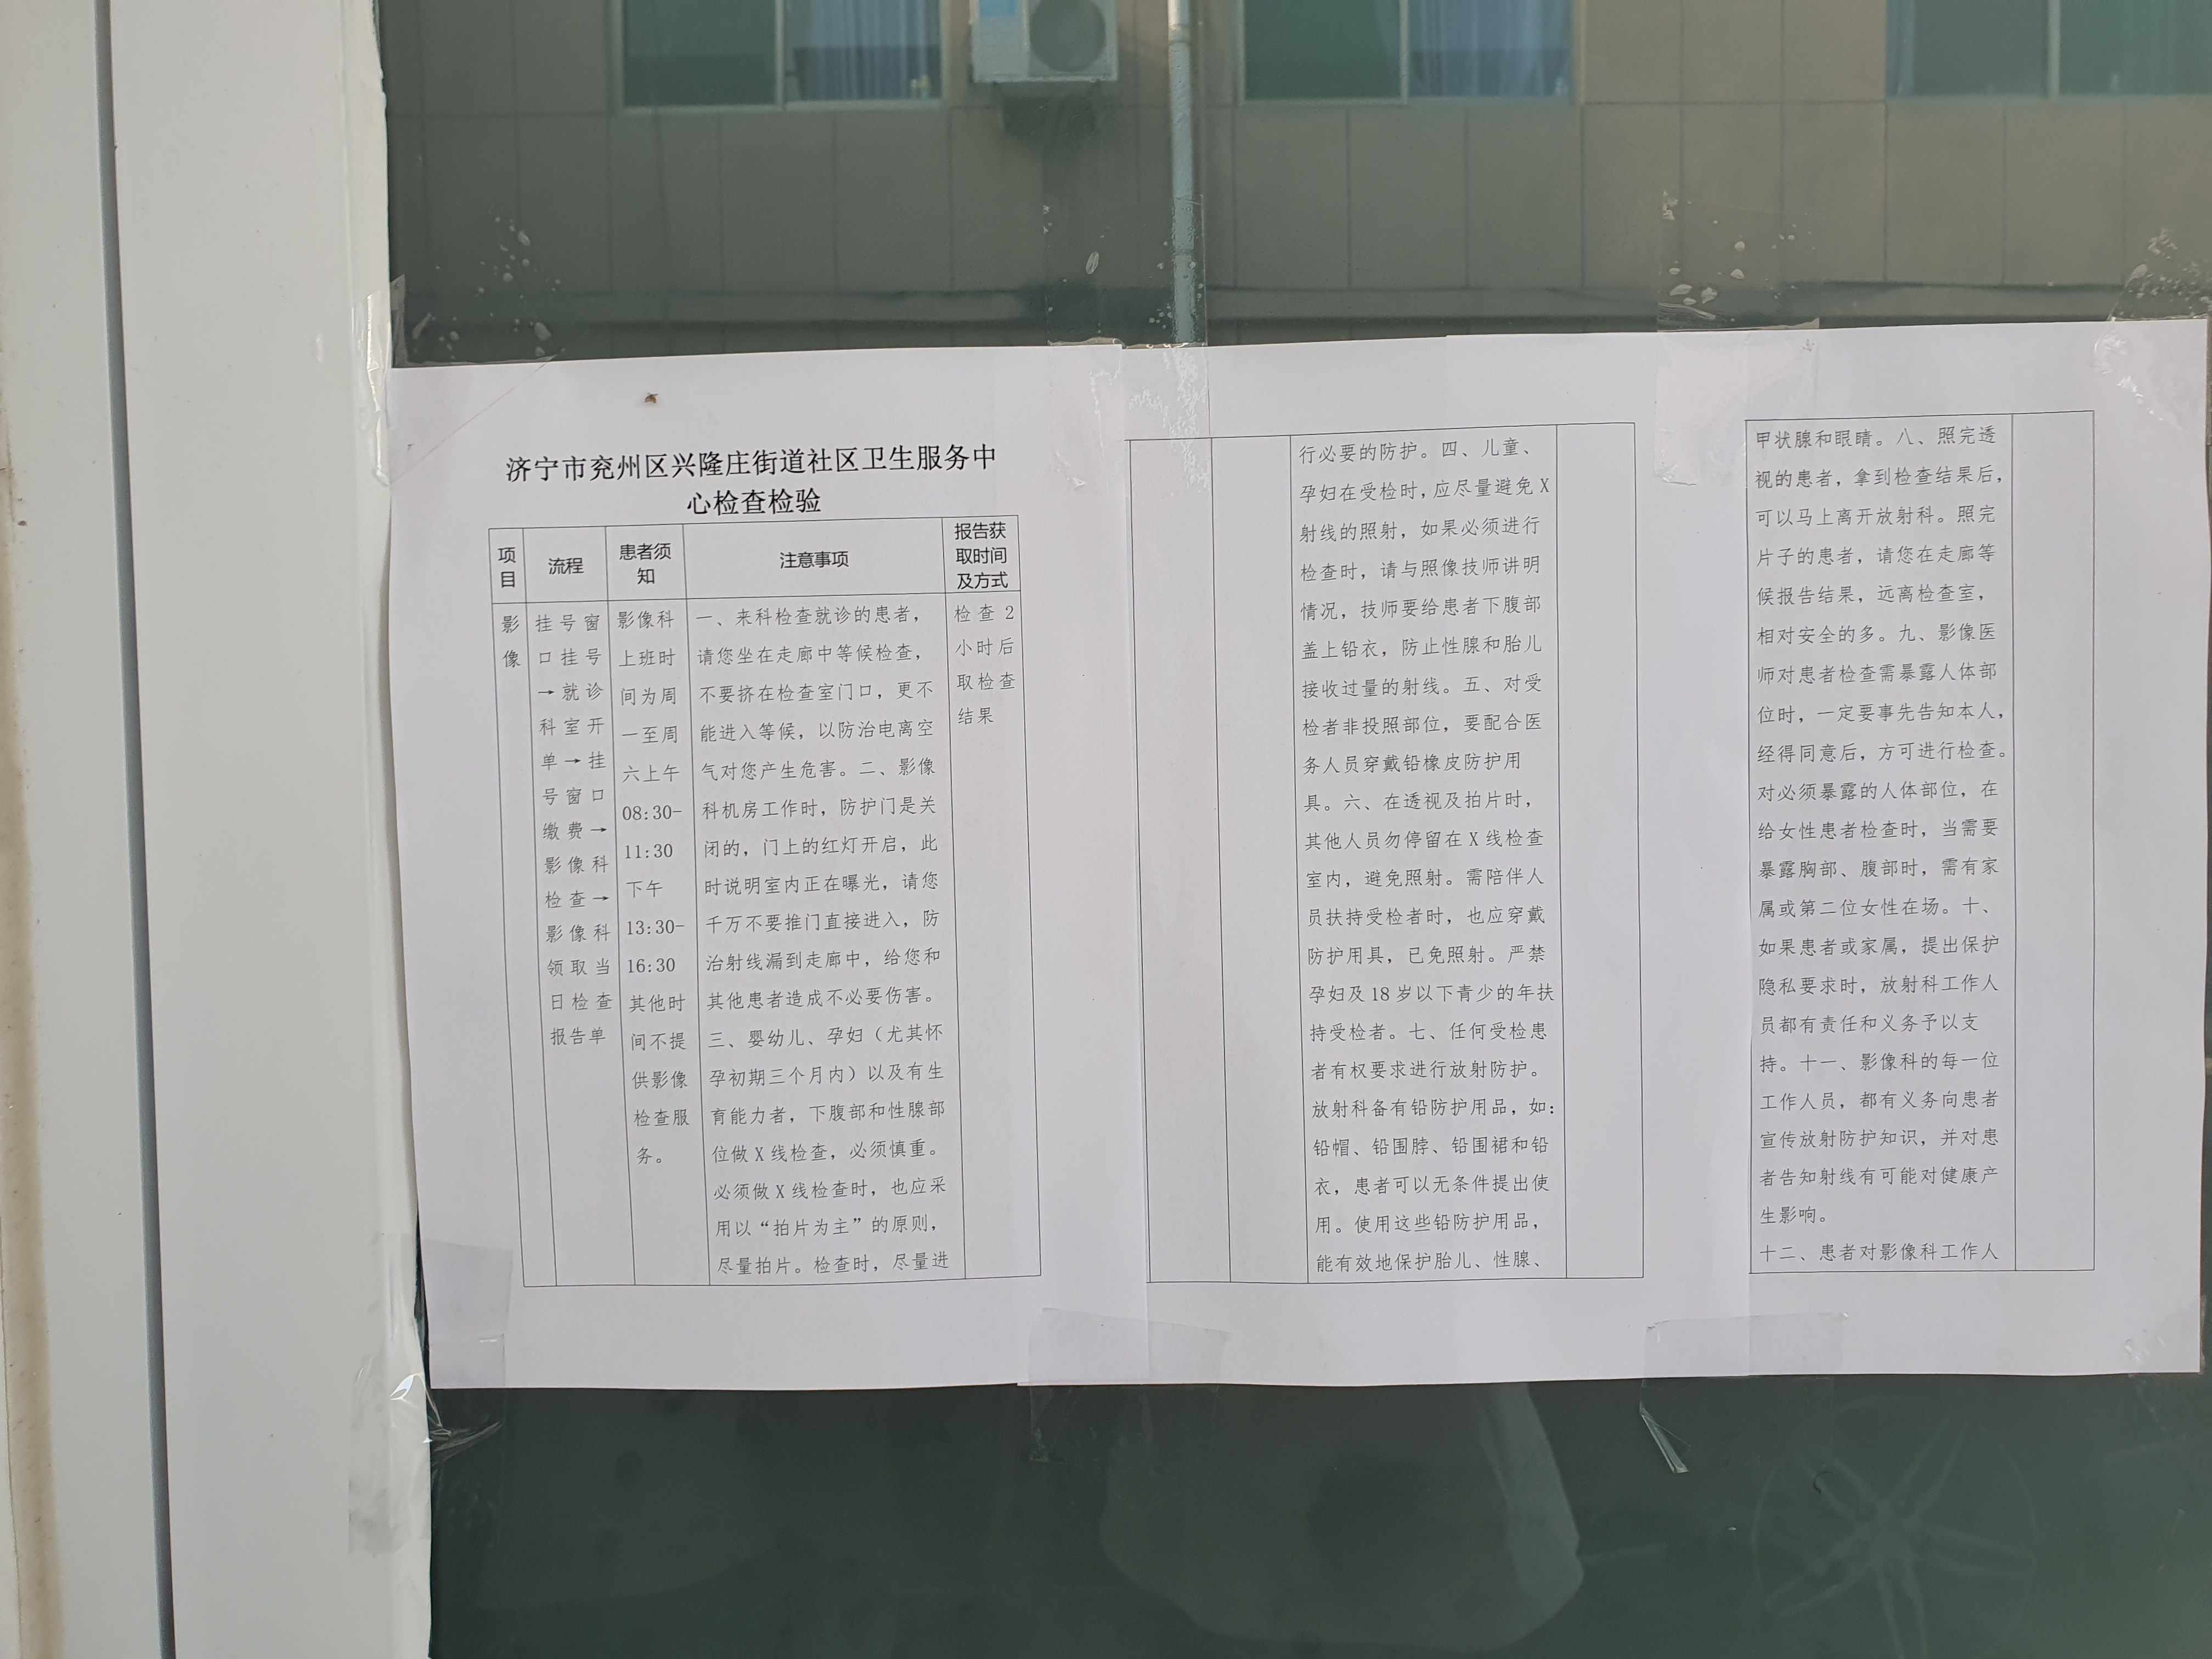 济宁市兖州区兴隆庄街道社区卫生服务中
心检查检验
项
目
流程
患者须
知
注意事项
报告获
取时间
及方式
影
像
挂号窗
口挂号
→就诊
科室开
单→挂
号窗口
缴费→
影像科
检查→
影像科
领取当
日检查
报告单
影像科
上班时
间为周
一至周
六上午
08:30-
11:30
下午
13:30-
16:30
其他时
间不提
供影像
检查服
务。
一、来科检查就诊的患者，
请您坐在走廊中等候检查，
不要挤在检查室门口，更不
能进入等候，以防治电离空
气对您产生危害。二、影像
科机房工作时，防护门是关
闭的，门上的红灯开启，此
时说明室内正在曝光，请您
千万不要推门直接进入，防
治射线漏到走廊中，给您和
其他患者造成不必要伤害。
三、婴幼儿、孕妇（尤其怀
孕初期三个月内）以及有生
育能力者，下腹部和性腺部
位做X线检查，必须慎重。
必须做X线检查时，也应采
用以“拍片为主”的原则，
尽量拍片。检查时，尽量进
检查2
小时后
取检查
结果
行必要的防护。四、儿童、
孕妇在受检时，应尽量避免X
射线的照射，如果必须进行
检查时，请与照像技师讲明
情况，技师要给患者下腹部
盖上铅衣，防止性腺和胎儿
接收过量的射线。五、对受
检者非投照部位，要配合医
务人员穿戴铅橡皮防护用
具。六、在透视及拍片时，
其他人员勿停留在X线检查
室内，避免照射。需陪伴人
员扶持受检者时，也应穿戴
防护用具，已免照射。严禁
孕妇及18岁以下青少的年扶
持受检者。七、任何受检患
者有权要求进行放射防护。
放射科备有铅防护用品，如：
铅帽、铅围脖、铅围裙和铅
衣，患者可以无条件提出使
用。使用这些铅防护用品，
能有效地保护胎儿、性腺、
甲状腺和眼睛。八、照完透
视的患者，拿到检查结果后，
可以马上离开放射科。照完
片子的患者，请您在走廊等
候报告结果，远离检查室，
相对安全的多。九、影像医
师对患者检查需暴露人体部
位时，一定要事先告知本人，
经得同意后，方可进行检查。
对必须暴露的人体部位，在
给女性患者检查时，当需要
暴露胸部、腹部时，需有家
属或第二位女性在场。十、
如果患者或家属，提出保护
隐私要求时，放射科工作人
员都有责任和义务予以支
持。十一、影像科的每一位
工作人员，都有义务向患者
宣传放射防护知识，并对患
者告知射线有可能对健康产
生影响。
十二、患者对影像科工作人